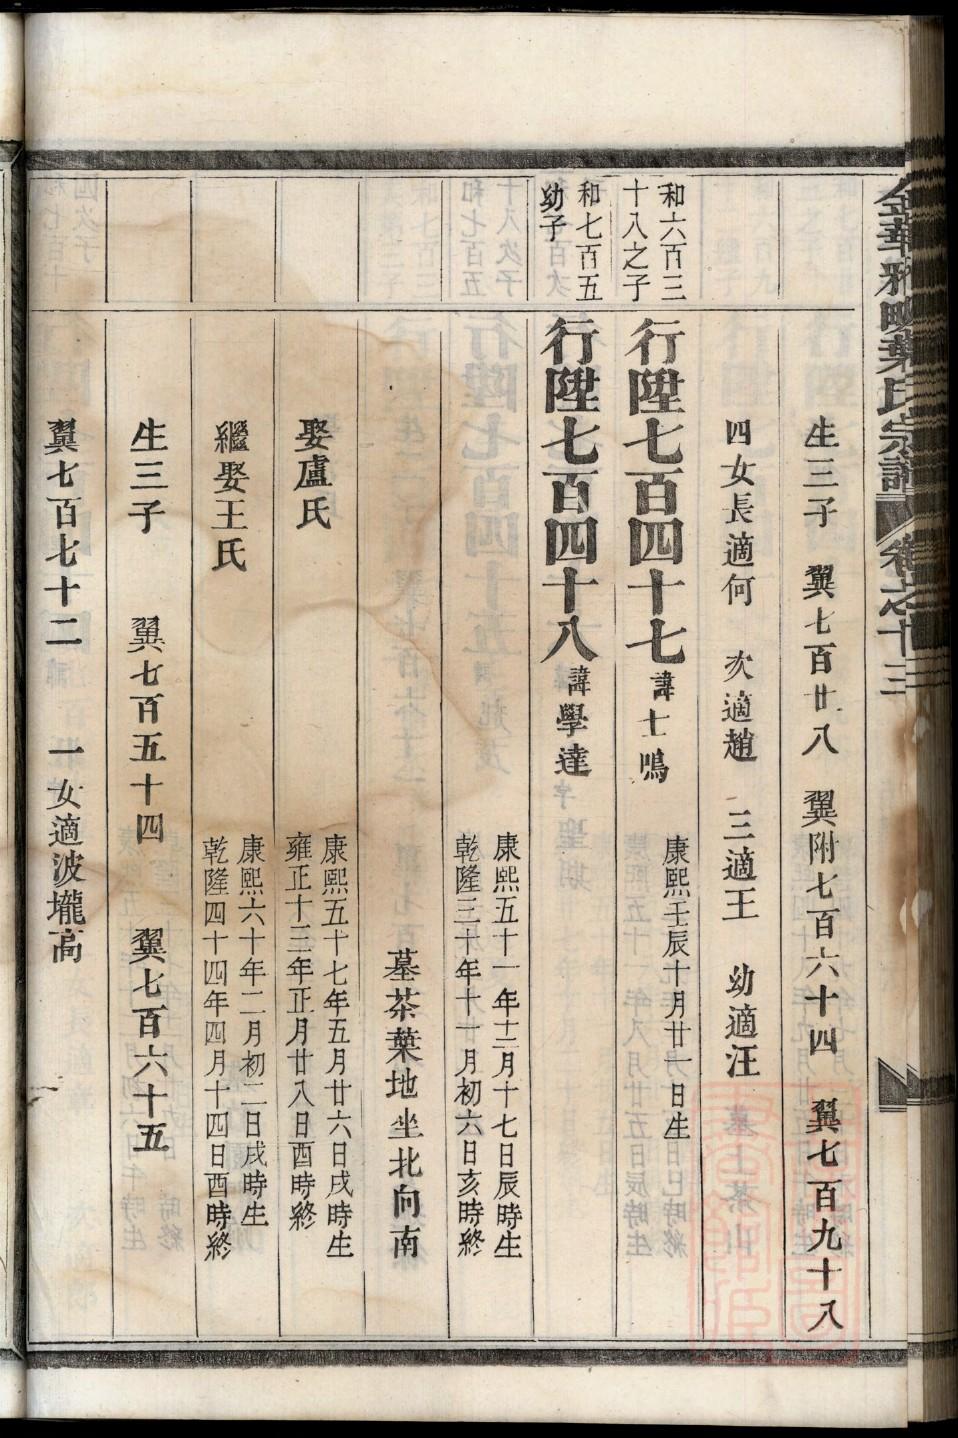 生三子 翼七百廿八 翼附七百六十四 翼七百九十八
四女長適何 次適趙 三適王 幼適汪
和六百三
十八之子
行陞七百四十七 諱士鳴
康熙壬辰十月廿一日生
和七百五
幼子
行陞七百四十八 諱學達
康熙五十一年十二月十七日辰時生
乾隆三十年十一月初六日亥時終
墓茶葉地坐北向南
娶盧氏
康熙五十七年五月廿六日戌時生
雍正十三年正月廿八日酉時終
繼娶王氏
康熙六十年二月初二日戌時生
乾隆四十四年四月十四日酉時終
生三子 翼七百五十四 翼七百六十五
翼七百七十二 一女適波壠高